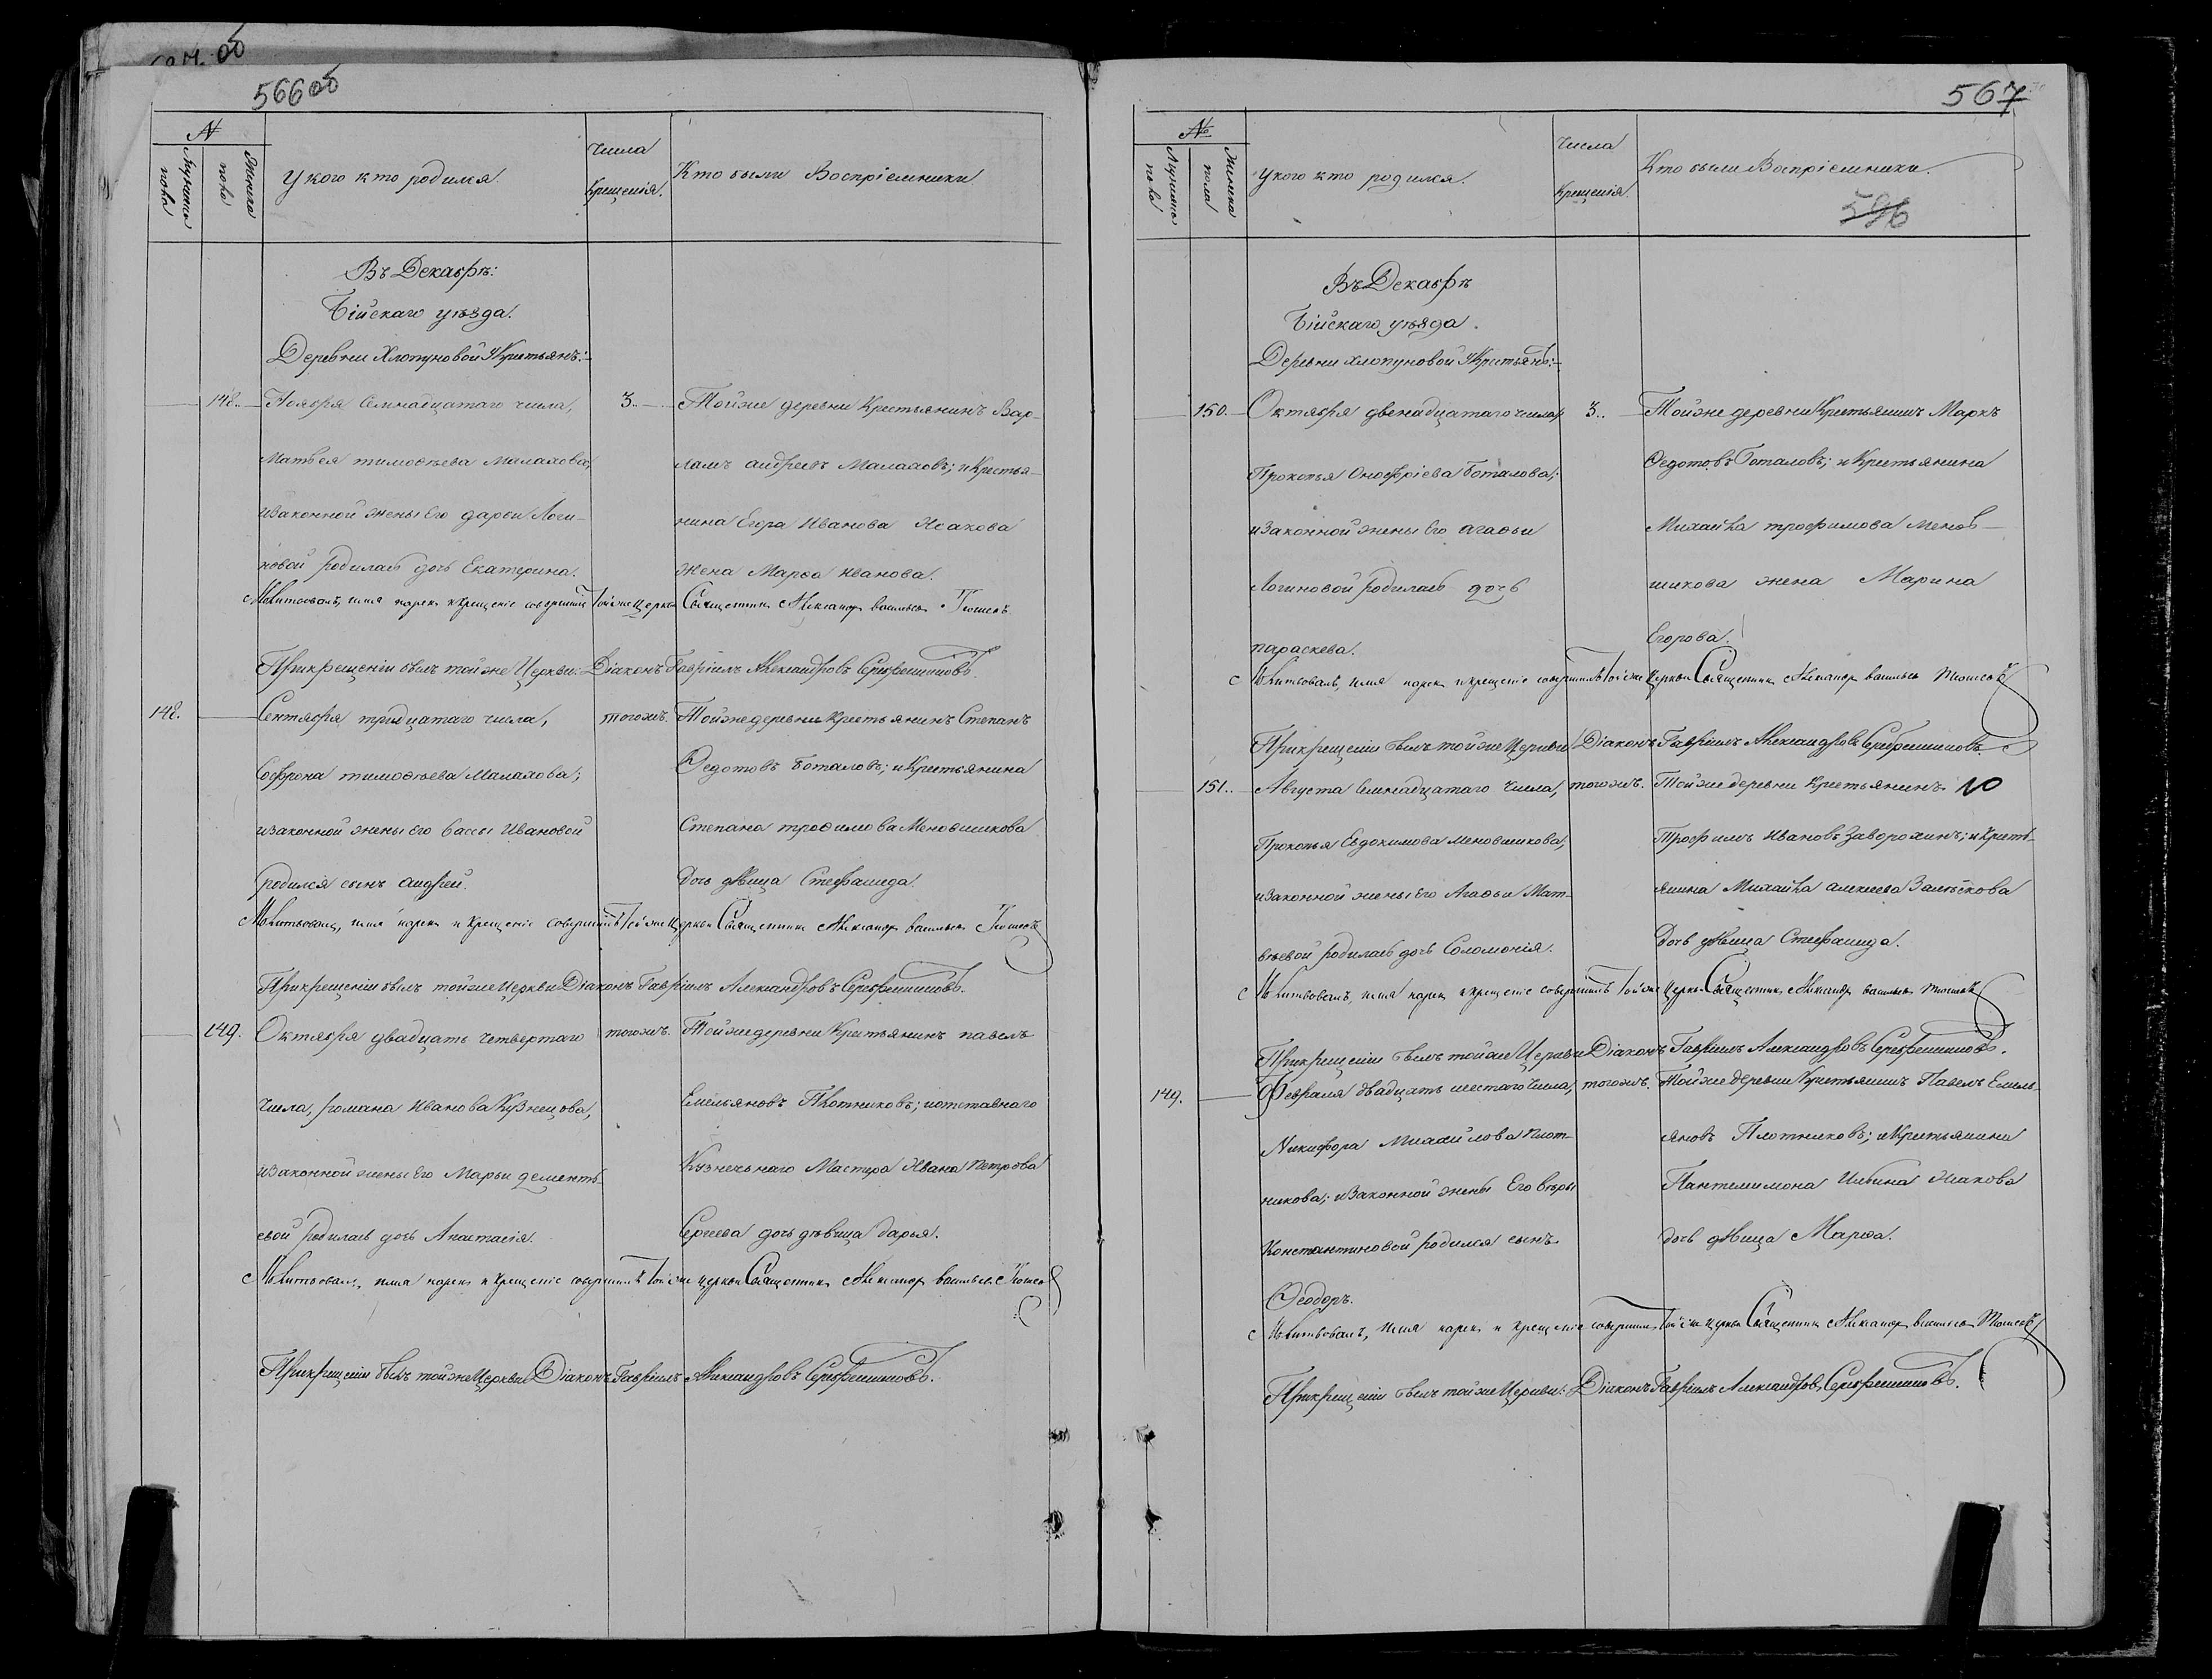 566 об
N
Мужеска пола
Женска пола
У кого кто родился.
Числа Крещенія.
Кто были Воспріемники
Въ Декабрѣ:
Бійскаго уѣзда.
Деревни Хлопуновой у Крестьянъ:
148. Ноября Семнадцатаго числа, 3. Тойже деревни Крестьянинъ Вар-
Матвея тимофѣева Малахова, ламъ андреевъ Малаховъ; и Крестья-
и законной жены Его дарьи Логи- нина Егора Иванова Исакова
новой родилась дочь Екатерина. жена Марфа иванова.
Молитвовалъ, имя нарекъ и крещеніе совершилъ Тойже церкви Священникъ Александръ васильевъ
При крещеніи былъ тойже Церкви: Діаконъ Гавріилъ Александровъ Серебренниковъ.
148. Сентября тридцатаго числа, тогожъ. Тойже деревни Крестьянинъ Степанъ
Софрона тимофѣева Малахова; Ѳедотовъ Боталовъ; и Крестьянина
и законной жены его вассы Ивановой Степана трофимова Меновшикова
родился сынъ андрей. Дочь дѣвица Стефанида.
Молитвовалъ, имя нарекъ и крещеніе совершилъ Тойже церкви Священникъ Александръ васильевъ
При крещеніи былъ тойже Церкви Діаконъ Гавріилъ Александровъ Серебренниковъ.
149. Октября двадцать четвертаго тогожъ. Тойже деревни Крестьянинъ павелъ
числа, романа Иванова Кузнецова, Емельяновъ Плотниковъ; и отставнаго
и законной жены Его Марьи дементь- Кузнечьнаго Мастера Ивана Петрова
евой родилась дочь Анастасія. Сергеева дочь дѣвица дарья.
Молитвовалъ, имя нарекъ и крещеніе совершилъ Тойже церкви Священникъ Александръ васильевъ
При крещеніи былъ тойже Церкви Діаконъ Гавріилъ Александровъ Серебренниковъ.
567
№
Мужеска пола
Женска пола
У кого кто родился.
Числа Крещенія.
Кто были Воспріемники.
596
Въ Декабрѣ
Бійскаго уѣзда.
Деревни Хлопуновой у Крестьянъ:
150. Октября двенадцатаго числа, 3.. Тойже деревни Крестьянинъ Маркъ
Прокопья Онофріева Боталова; Ѳедотовъ Боталовъ; и Крестьянина
и законной жены Его агафьи Михайла трофимова Менов-
Логиновой родилась дочь шикова жена Марина
параскева. Егорова.
Молитвовалъ, имя нарекъ и крещеніе совершилъ Тойже церкви Священникъ Александръ васильевъ
При крещеніи былъ тойже Церкви Діаконъ Гавріилъ Александровъ Серебренниковъ.
151.. Августа Семнадцатаго числа, тогожъ. Тойже деревни Крестьянинъ 10
Прокопья Евдокимова Меновшикова, Трофимъ Ивановъ Заворохинъ; и Кресть-
и законной жены Его Агафьи Мат- янина Михайла алексеева
вѣевой родилась дочь Соломонія. Дочь дѣвица Стефанида.
Молитвовалъ, имя нарекъ и крещеніе совершилъ Тойже церкви Священникъ Александръ васильевъ
При крещеніи былъ тойже Церкви Діаконъ Гавріилъ Александровъ Серебренниковъ.
149. Февраля двадцать шестаго числа, тогожъ. Тойже деревни Крестьянинъ Павелъ Емель-
Никифора Михайлова Плот- яновъ Плотниковъ; и Крестьянина
никова; и законной жены Его вѣры Пантелимона Ильина Исакова
Константиновой родился сынъ дочь дѣвица Марфа.
Ѳеодоръ.
Молитвовалъ, имя нарекъ и крещеніе совершилъ Тойже церкви Священникъ Александръ васильевъ
При крещеніи былъ тойже Церкви: Діаконъ Гавріилъ Александровъ Серебренниковъ.